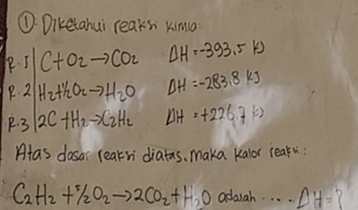 ① Diketahui reaksi kimia:
R.1 | C + O₂ → CO₂ ΔH = -393,5 kJ
R.2 | H₂ + ½O₂ → H₂O ΔH = -283,8 kJ
R.3 | 2C + H₂ → C₂H₂ ΔH = +226,7 kJ
Atas dasar reaksi diatas, maka kalor reaksi:
C₂H₂ + 5/2 O₂ → 2CO₂ + H₂O adalah .... ΔH = ?